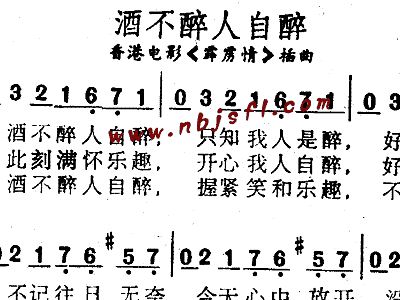 酒不醉人自醉
香港电影《霹雳情》插曲
3 2 1 6 7 1 | 0 3 2 1 6 7 1 | 0 3
酒不醉人自醉, 只知我人是醉, 好
此刻满怀乐趣, 开心我人自醉, 好
酒不醉人自醉, 握紧笑和乐趣, 不
www.nbjsfl.com
0 2 1 7 6 #5 7 | 0 2 1 7 6 #5 7 | 0 2
不记往日 无奈 今天心中 放开